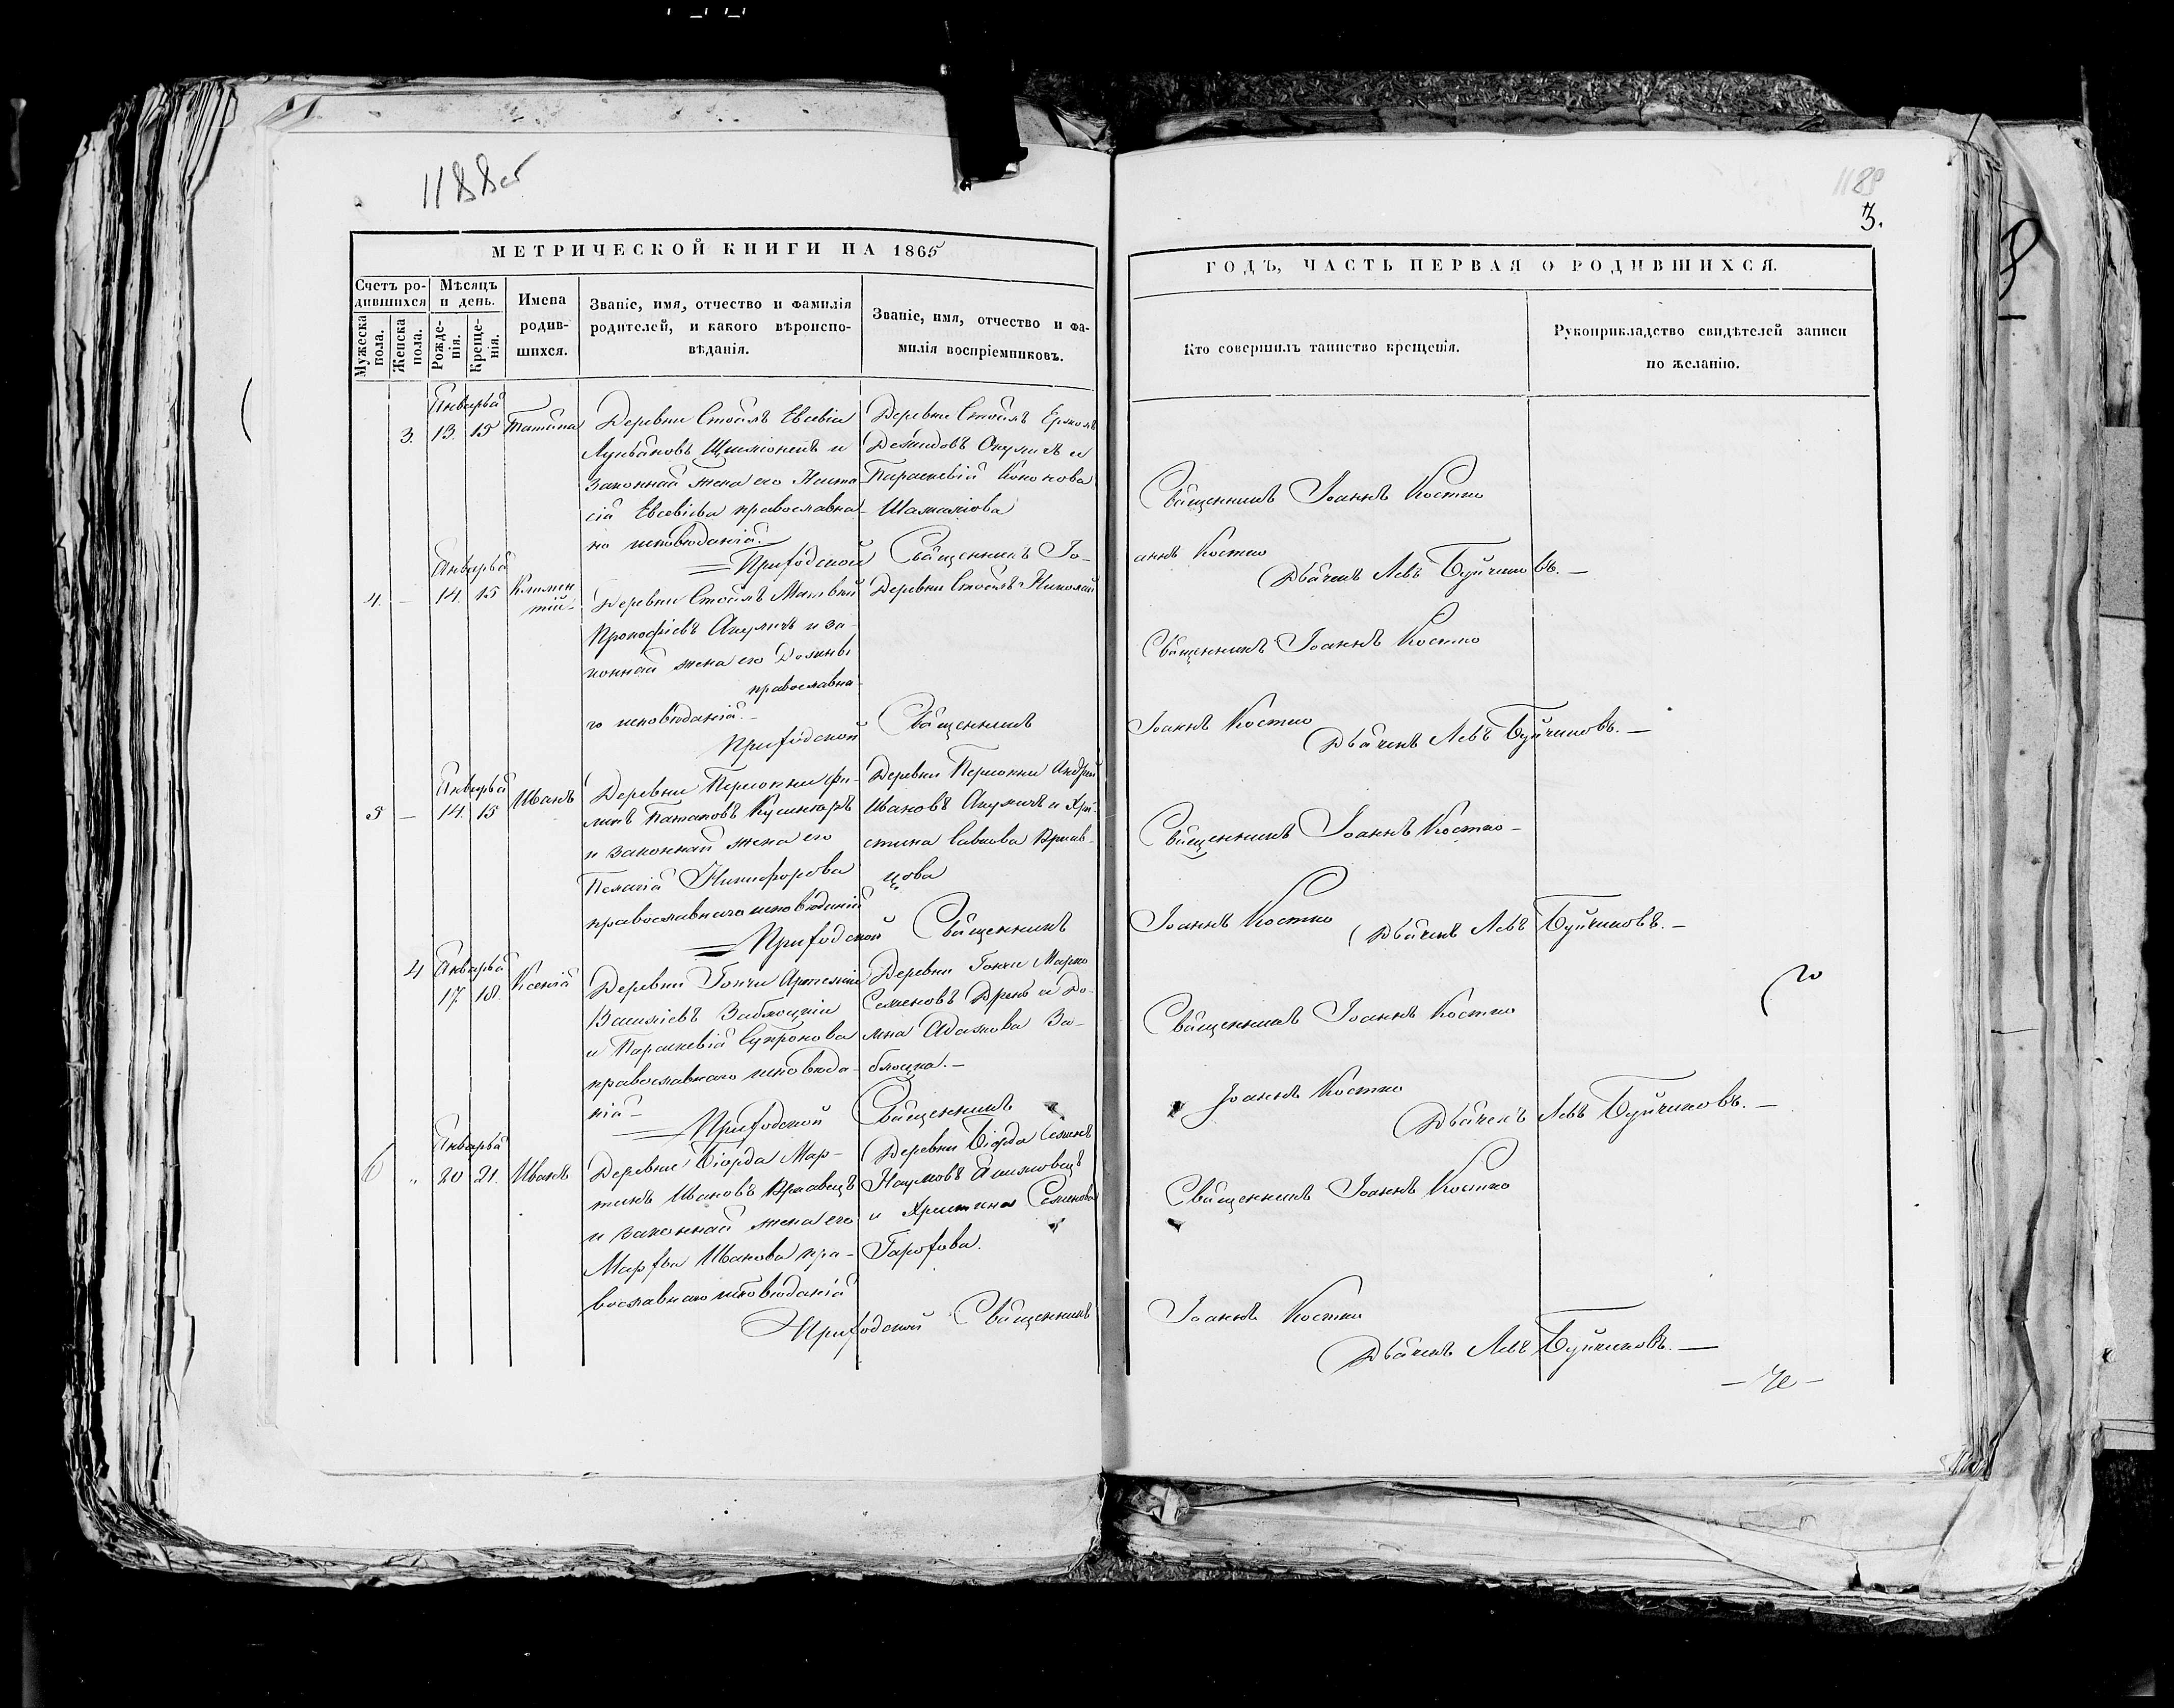 1188об
1189
3.
МЕТРИЧЕСКОЙ КНИГИ НА 1865
ГОДЪ, ЧАСТЬ ПЕРВАЯ О РОДИВШИХСЯ.
Счетъ ро-
дившихся
Мужеска
пола.
Женска
пола.
Мѣсяцъ
и день.
Рожде-
нія.
Креще-
нія.
Имена
родив-
шихся.
Званіе, имя, отчество и фамилія
родителей, и какого вѣроиспо-
вѣданія.
Званіе, имя, отчество и фа-
милія воспріемниковъ.
Кто совершилъ таинство крещенія.
Рукоприкладство свидѣтелей записи
по желанію.
Январья
3. 13. 15 Татіяна
Деревни Стоялъ Евсевій
Лукьяновъ и
законная жена его
сія Евсевіева православна-
го исповѣданія.
Деревни Стоялъ Ермолъ
Демидовъ Акуличъ и
Параскевія Кононова
Священникъ Іоаннъ Костко
Приходской Священникъ Іо-
аннъ Костко
Дьячекъ Левъ Буйчиковъ. —
Январья
4. — 14. 15 Климен
тій-
Деревни Стоялъ Матвѣй
Прокофіевъ Акуличъ и за-
конная жена его
православна-
го исповѣданія. —
Деревни Стоялъ Николай
Священникъ Іоаннъ Костко
Приходской Священникъ
Іоаннъ Костко
Дьячекъ Левъ Буйчиковъ. —
Январья
5 — 14. 15 Иванъ
Деревни Фи-
липъ Кушнаръ
и законная жена его
Пелагія Никифорова
православнаго исповѣданія
Деревни Андрей
Ивановъ Акуличъ и Хри-
стина Савкова Кравцова
Священникъ Іоаннъ Костко -
Приходской Священникъ
Іоаннъ Костко
Дьячекъ Левъ Буйчиковъ. —
4 Январья
17. 18. Ксенія
Деревни Гончи Артемій
Василіевъ Заблоцкій
и Параскевія Супронова
православнаго исповѣда-
нія —
Деревни Гончи Марко
Семеновъ и До-
мна Адамова За-
блоцка. —
Священникъ Іоаннъ Костко
Приходской Священникъ
Іоаннъ Костко
Дьячекъ Левъ Буйчиковъ. —
Январья
6 „ 20 21. Иванъ
Деревни Мар-
тинъ Ивановъ Кравецъ
и законная жена его
Марфа Иванова пра-
вославнаго исповѣданія
Деревни Семенъ
Наумовъ
и Христина Семенова
Гарохова.
Священникъ Іоаннъ Костко
Приходской Священникъ
Іоаннъ Костко
Дьячекъ Левъ Буйчиковъ. —